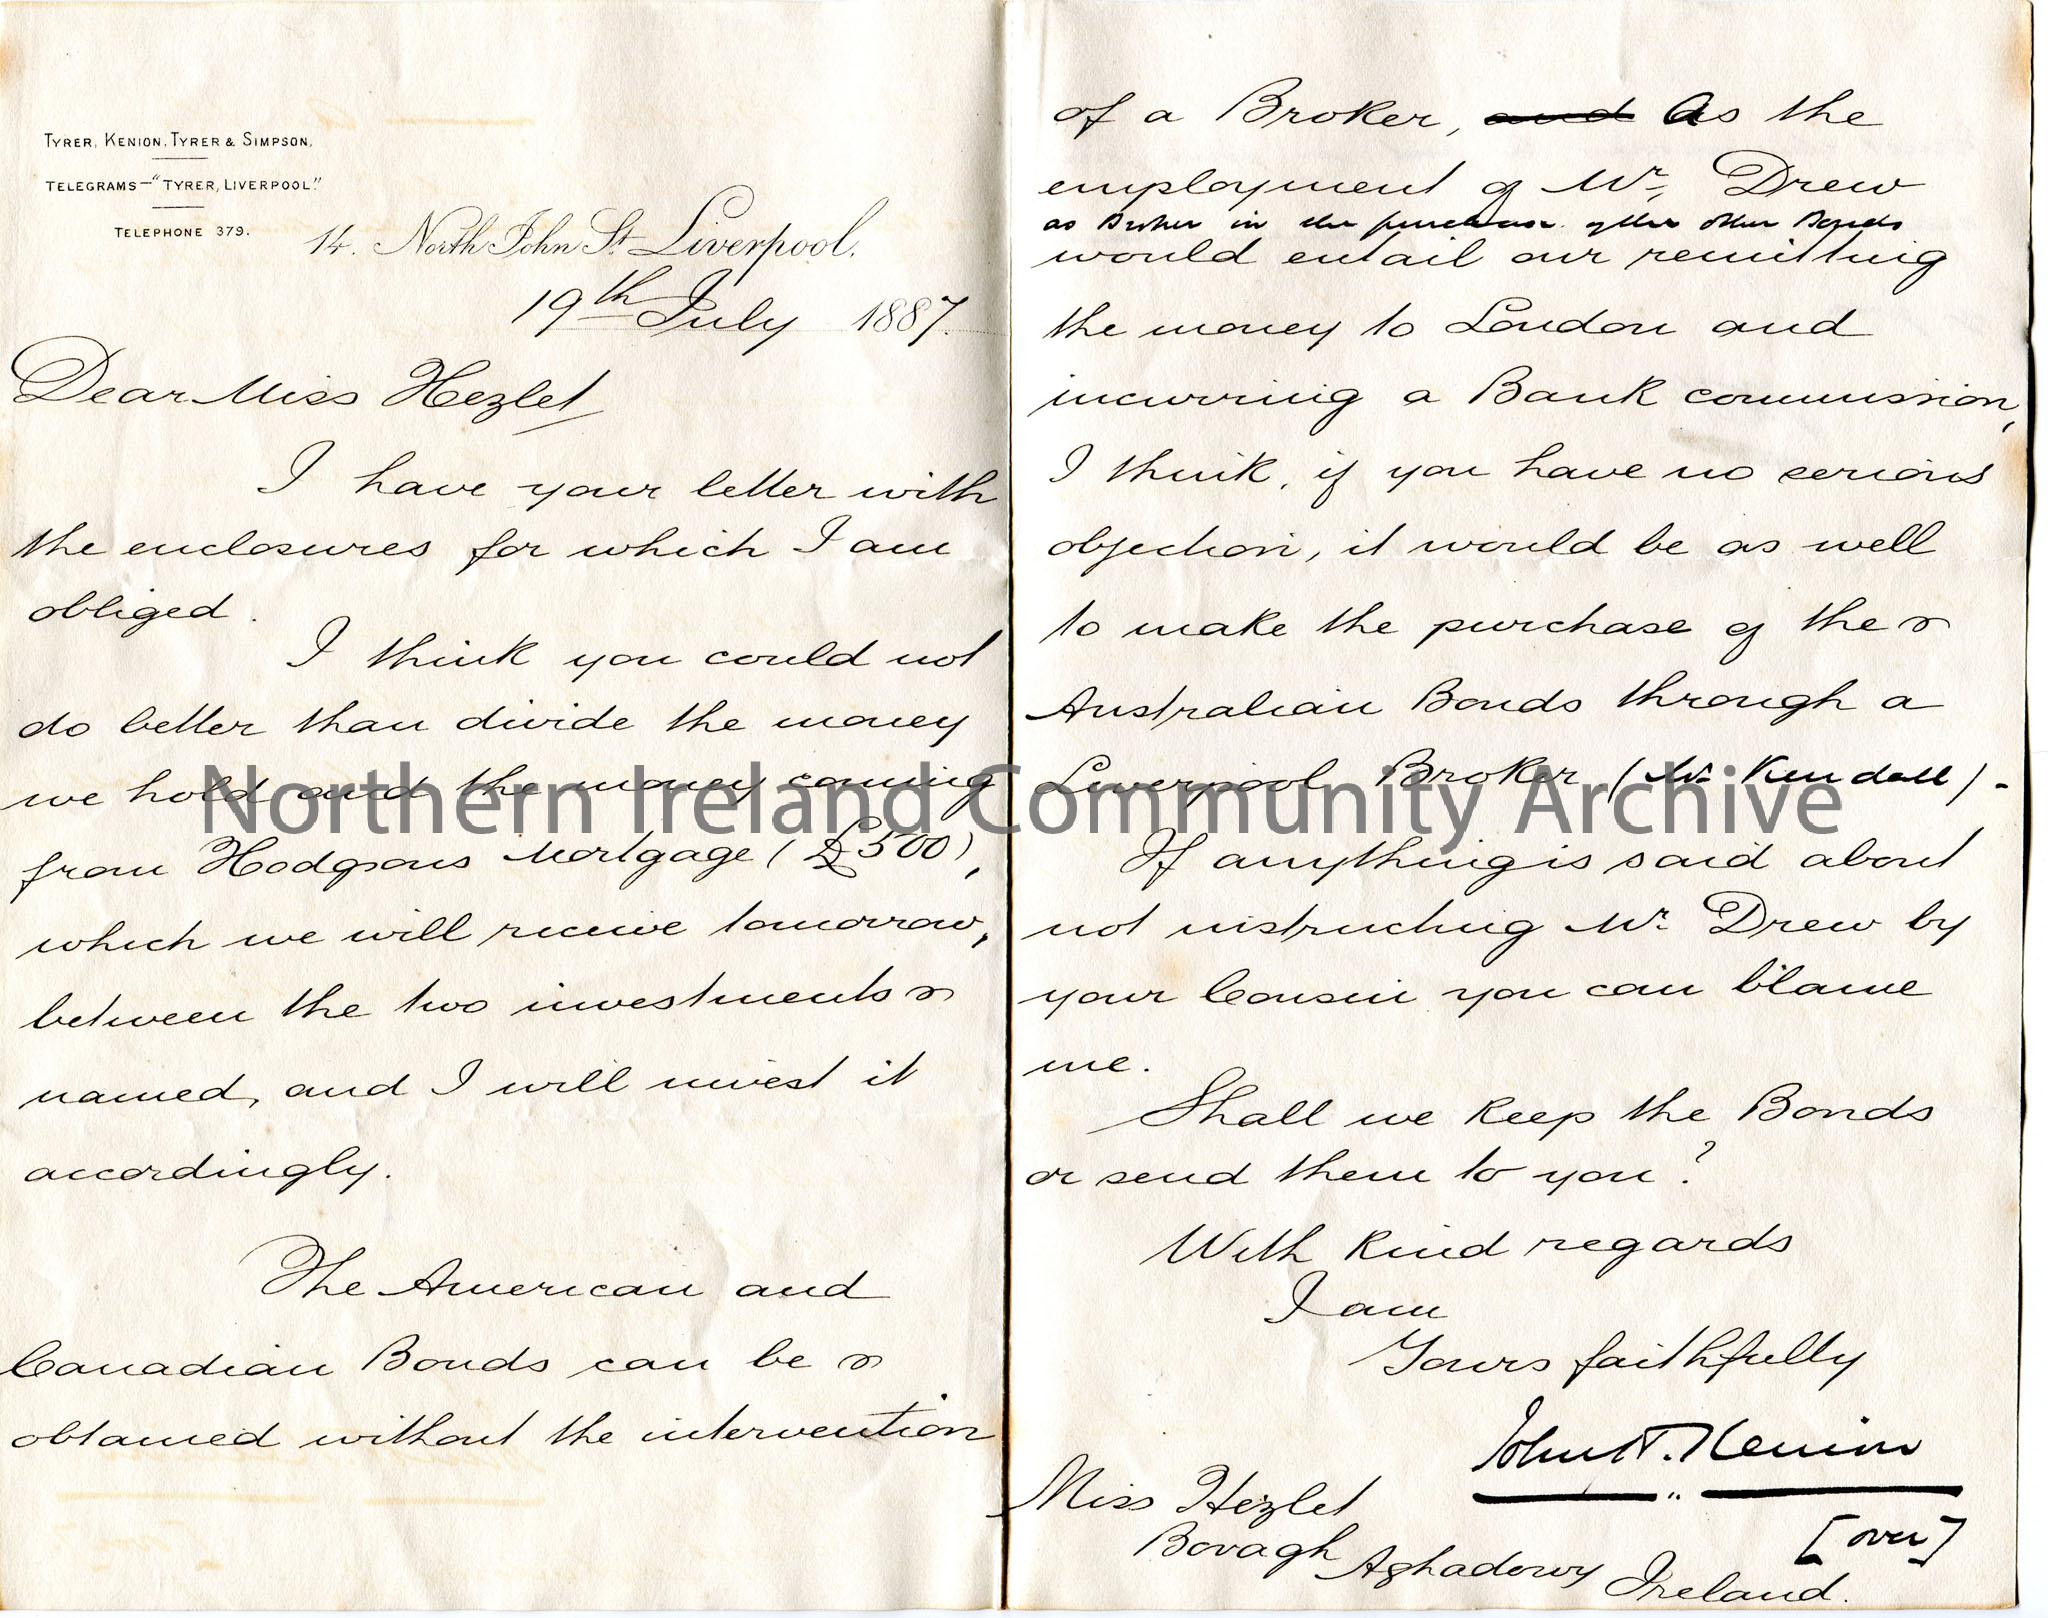 TYRER, KENION, TYRER & SIMPSON,
TELEGRAMS—"TYRER, LIVERPOOL."
TELEPHONE 379.
14. North John St. Liverpool,
19th July 1887.
Dear Miss Hezlet
I have your letter with
the enclosures for which I am
obliged.
I think you could not
do better than divide the money
we hold and the money coming
from Hodgsons Mortgage (£500),
which we will receive tomorrow,
between the two investments
named, and I will invest it
accordingly.
The American and
Canadian Bonds can be
obtained without the intervention
of a Broker, and As the
employment of Mr. Drew
as Broker in the purchase of the other Bonds
would entail our remitting
the money to London and
incurring a Bank commission,
I think, if you have no serious
objection, it would be as well
to make the purchase of the
Australian Bonds through a
Liverpool Broker (Mr. Kendall).
If anything is said about
not instructing Mr. Drew by
your Cousin you can blame
me.
Shall we keep the Bonds
or send them to you?
With kind regards
I am
Yours faithfully
John T. Kenion
[over]
Miss Hezlet
Bovagh Aghadowy Ireland.
Northern Ireland Community Archive